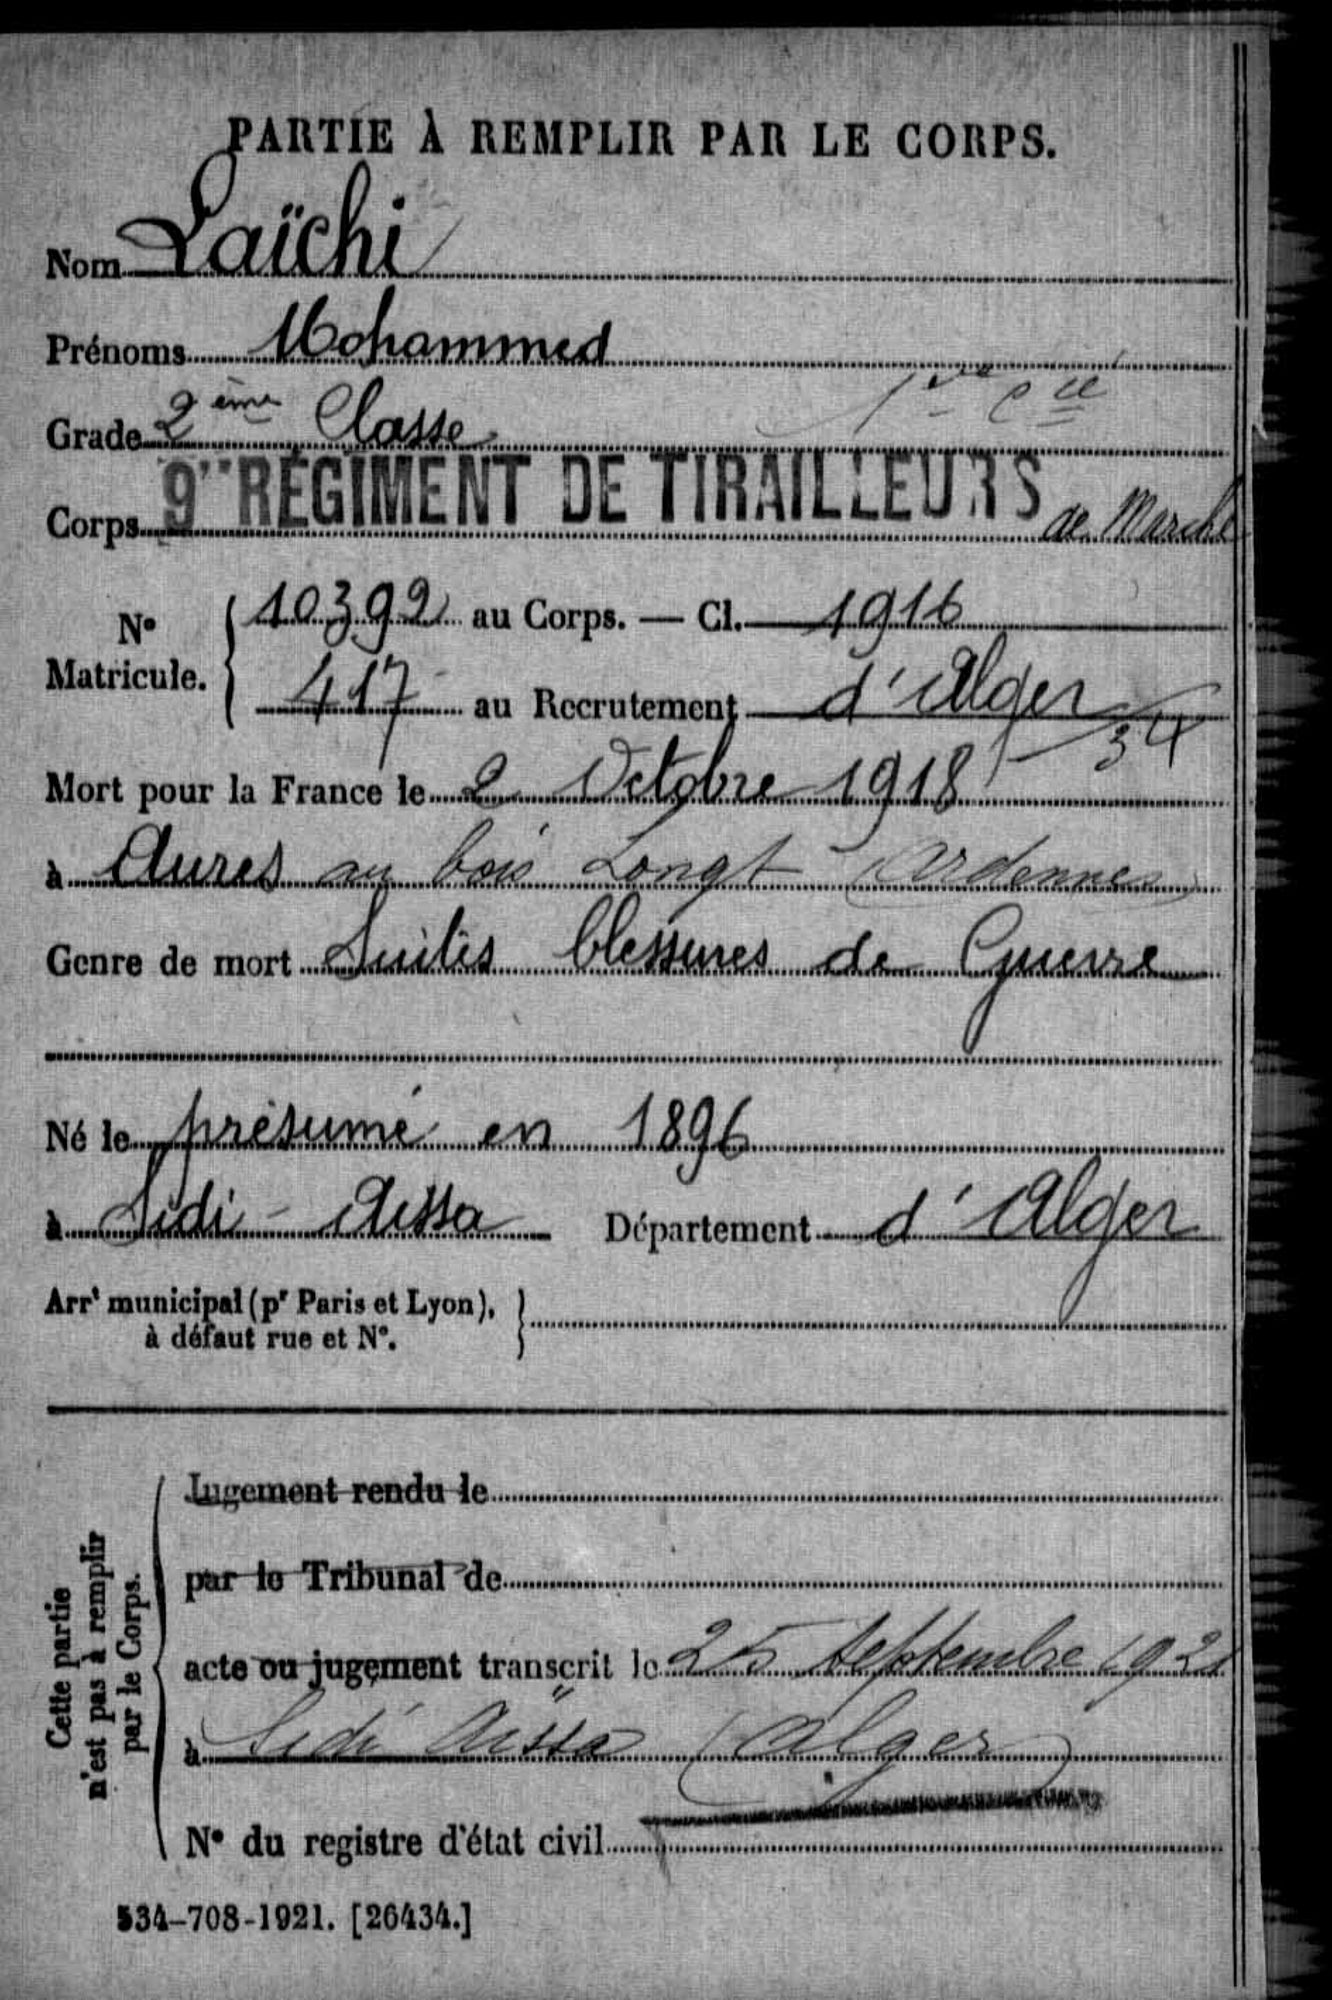 PARTIE À REMPLIR PAR LE CORPS.
Nom Laïchi
Prénoms Mohammed
Grade 2ème Classe 1re Cie
Corps 9e RÉGIMENT DE TIRAILLEURS de Marche
No Matricule. 10392 au Corps. — Cl. 1916
417 au Recrutement d'Alger
34
Mort pour la France le 2 Octobre 1918
à Aures au bois Longt (Ardennes)
Genre de mort Suites blessures de Guerre
Né le présumé en 1896
à Sidi-Aissa Département d'Alger
Arrt municipal (pr Paris et Lyon),
à défaut rue et No.
Cette partie
n'est pas à remplir
par le Corps.
Jugement rendu le
par le Tribunal de
acte ou jugement transcrit le 25 Septembre 1921
à Sidi Aïssa (Alger)
No du registre d'état civil
534-708-1921. [26434.]